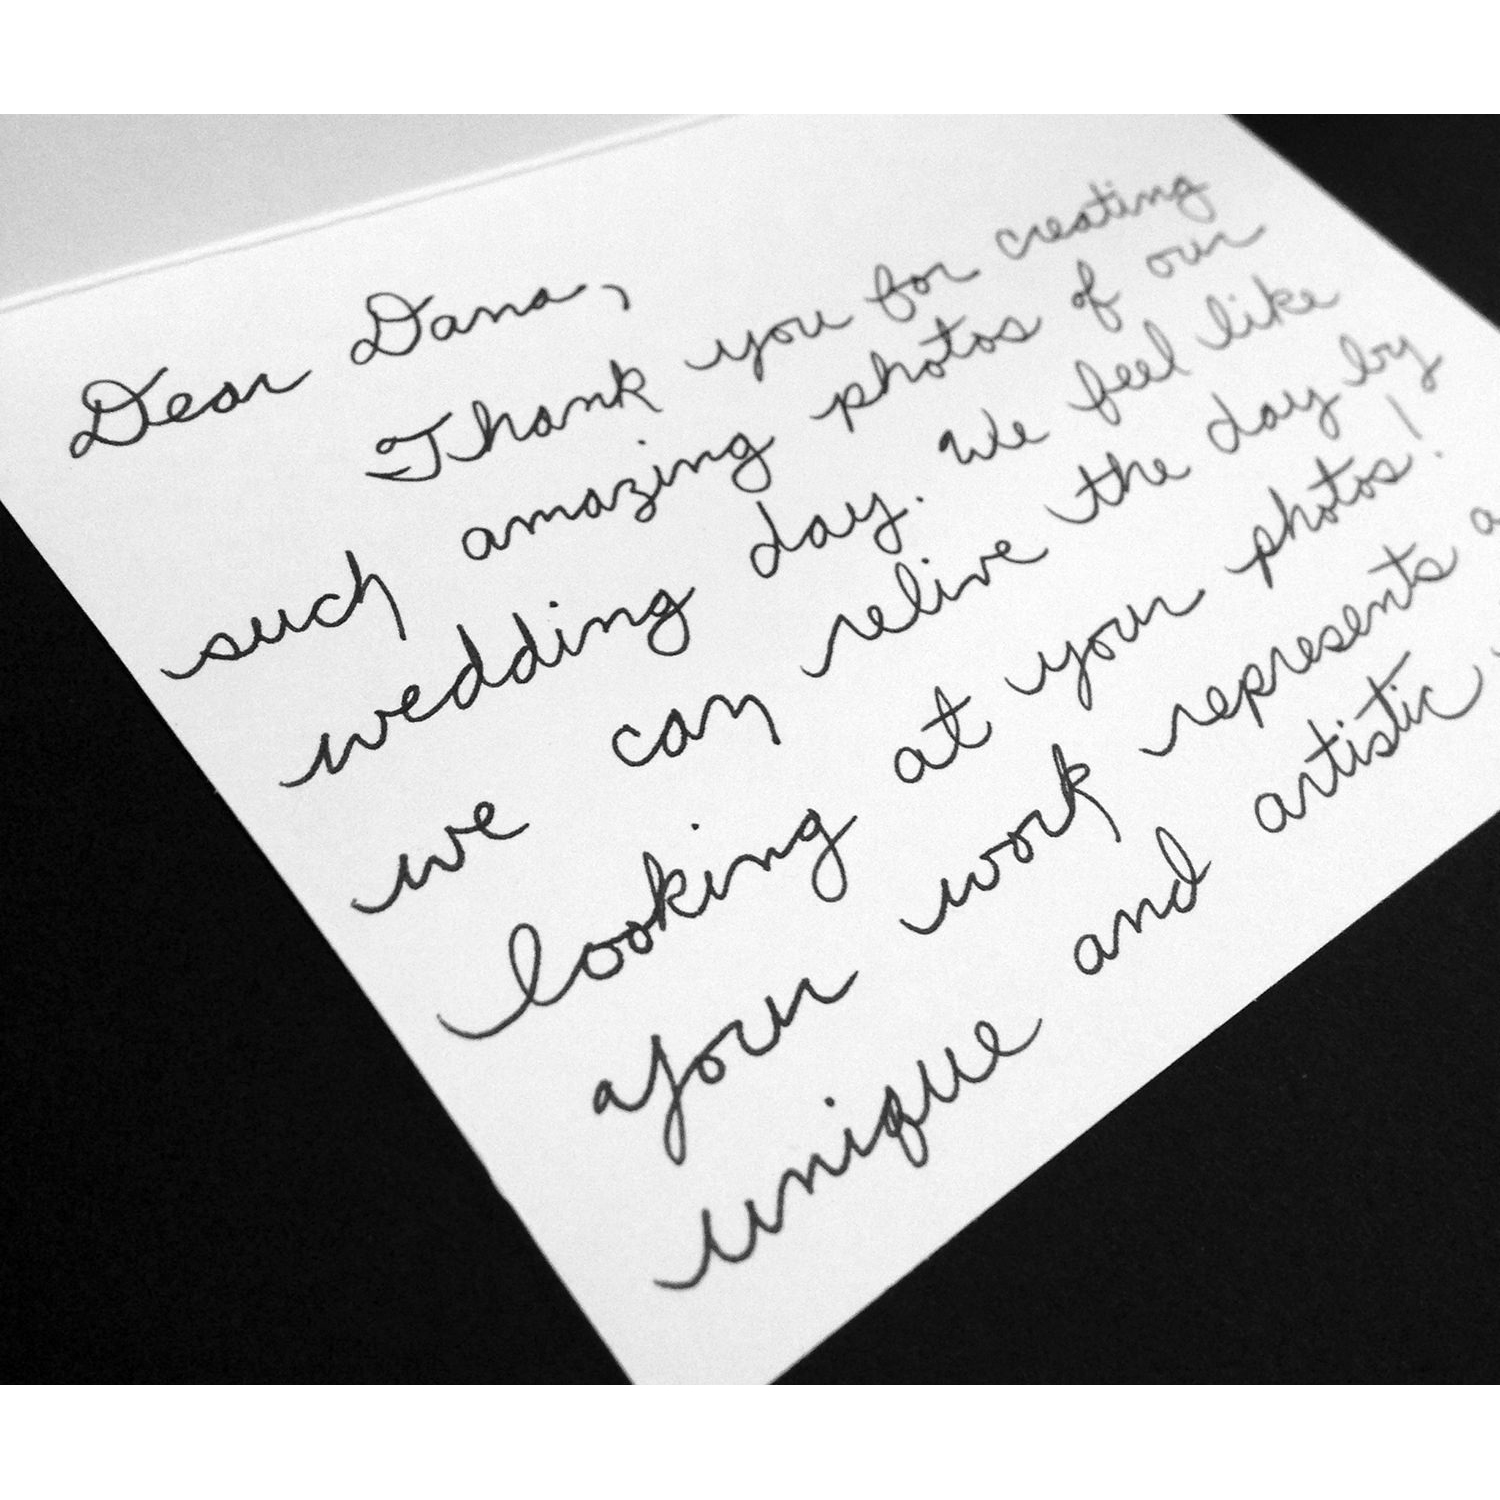 Dear Dana,
Thank you for creating
such amazing photos of our
wedding day. We feel like
we can relive the day by
looking at your photos!
your work represents a
unique and artistic